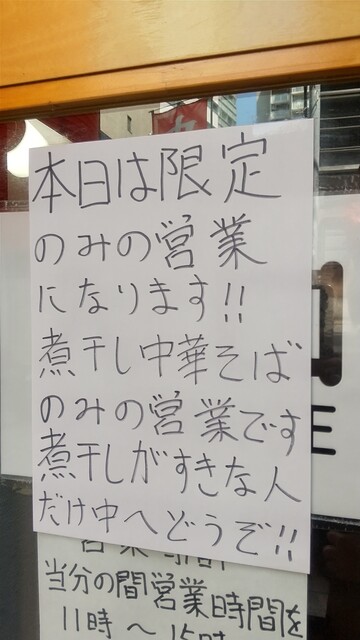 本日は限定
のみの営業
になります!!
煮干し中華そば
のみの営業です
煮干しがすきな人
だけ中へどうぞ!!
営業時間
当分の間営業時間を
11時〜15時
E